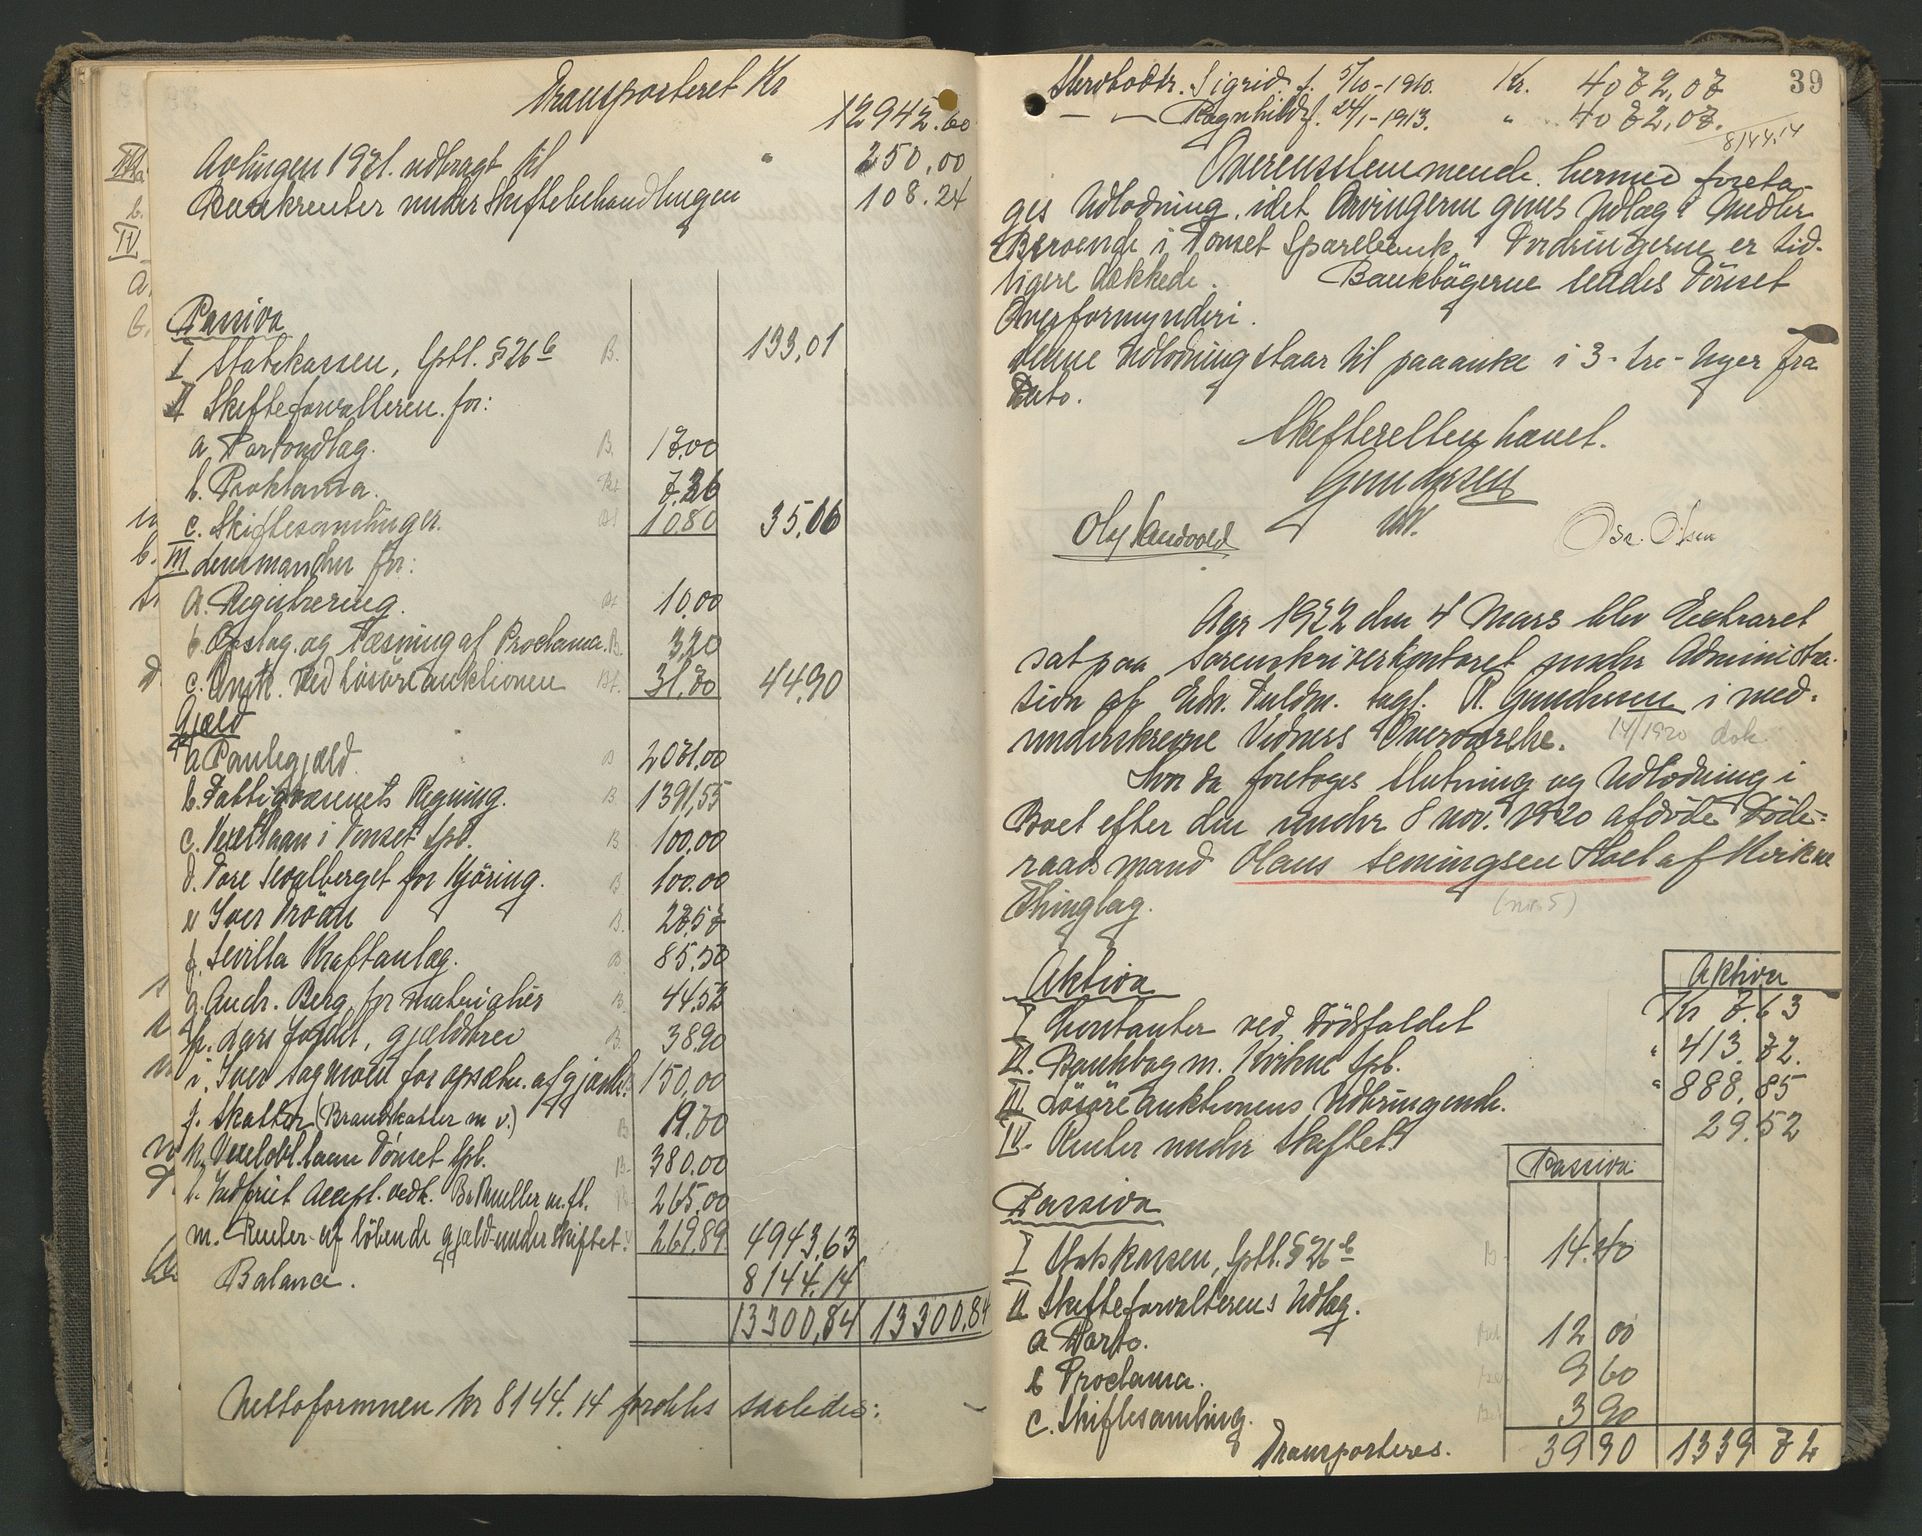 Transporteret Kr
12942.60
Avlingen 1921. udbragt til " 250,00
Bankrenter under Skiftebehandlingen 108.24
Passiva
I Statskassen, Sptl. § 26 b B. 133,01
II Skifteforvalteren for:
a. Portoudlag. B. 17.00
b. Proklama. Bt 7.26
c. Skiftesamlinger. Bt 10.80 35,06
III Lensmanden for:
a. Registrering. Bt 10.00
b. Opslag. og Læsning af Proclama. B. 3.20
c. Omk. ved Løsøreauktionen Bt. 31.70 44,90
Gjæld
a. Pantegjæld B 2071.00
b. Fattigvæsenets Regning. B 1391,55
c. Vexellaan i Tønset Spb. B 100.00
d. Tore Sevalberget for Kjøring. B 100.00
e. Iver Trøen B. 27.57
f. Sevilla Kraftanlæg. B 85.50
g. Andr. Berg, for materialier B. 44.52
h. Lars Jordet, gjældsbrev B. 38.90
i. Iver Sagmoen for opsætn. af gjærde. 150.00
j. Skatter (Brandskatter m v.) B 19.70
k. Vexelobl. laan Tønset Spb. B. 380.00
l. Indfriet Accept. vedk. Br. Møller m. fl. B 265.00
m. Renter af løbende gjæld under Skiftet. 269.89 4943,63
Balance. 8144.14
13300,84 13300,84
Nettoformuen kr 8144.14 fordeles saaledes: —
39
Sigrid f. 5/10-1910. Kr. 4072,07
— " — Ragnhild f. 24/1-1913. " 4072,07.
8144.14
Overensstemmende hermed foreta-
ges Udlodning, idet Arvingerne gives Udlæg i Midler
Beroende i Tønset Sparebank. Fordringerne er tid-
ligere dækkede. Bankbøgerne sendes Tønset
Overformynderi.
Denne Udlodning staar til paaanke i 3- tre- Uger fra
Dato.
Skifteretten hævet.
Gundersen
Olaf Sandvold Or. Olsen
Aar 1922 den 4 Mars blev Extraret
sat paa Sorenskriverkontoret under Administra-
tion af Edv. Fuldm. sagf. R. Gundersen i med-
underskrevne Vidners Overværelse. 14/1920 dok.
Hvor da foretoges Slutning og Udlodning i
Boet efter den under 8 nov. 1920 afdøde Føde-
raadsmand Olaus Semingsen Hoel af Kvikne
Thinglag. (nr. 5)
Aktiva Aktiva
I Kontanter ved Dødsfaldet Kr 7.63
II. Bankbog m. Kvikne Spb. " 413.72.
III Løsøreauktionens Udbringende. " 888,85
IV. Renter under Skiftet. 29.52
Passiva
Passiva
I Statskassen, Sptl. § 26 b B. 14.40
II Skifteforvalterens Udlæg.
a Porto. 12 00
b Proclama. 9 60
c. Skiftesamling. 3 90
Transporteres. 39 90 1339 72